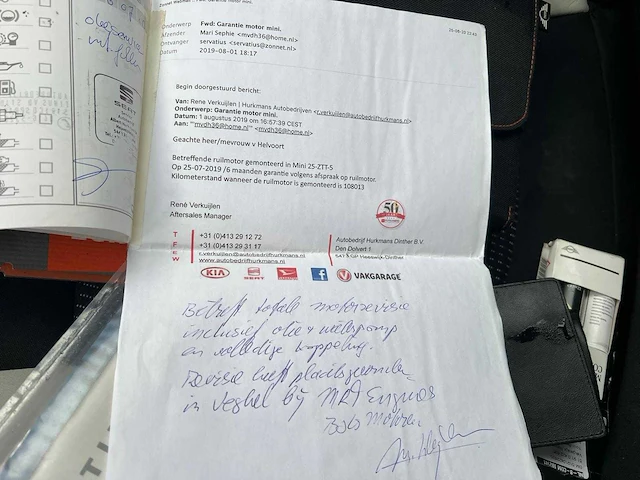 Onderwerp Fwd: Garantie motor mini.
Afzender Mari Sephie <mvdh36@home.nl>
Ontvanger servatius <servatius@zonnet.nl>
Datum 2019-08-01 18:17
Begin doorgestuurd bericht:
Van: Rene Verkuijlen | Hurkmans Autobedrijven <r.verkuijlen@autobedrijfhurkmans.nl>
Onderwerp: Garantie motor mini.
Datum: 1 augustus 2019 om 16:57:39 CEST
Aan: "'mvdh36@home.nl'" <mvdh36@home.nl>
Geachte heer/mevrouw v Helvoort
Betreffende ruilmotor gemonteerd in Mini 25-ZTT-5
Op 25-07-2019 /6 maanden garantie volgens afspraak op ruilmotor.
Kilometerstand wanneer de ruilmotor is gemonteerd is 108013
René Verkuijlen
Aftersales Manager
50
T +31 (0)413 29 12 72
F +31 (0)413 29 31 17
E r.verkuijlen@autobedrijfhurkmans.nl
W www.autobedrijfhurkmans.nl
Autobedrijf Hurkmans Dinther B.V.
Den Dolvert 1
KIA SEAT f VAKGARAGE
Betreft totale motorrevisie
inclusief olie + waterpomp
en volledige koppeling.
Revisie heeft plaatsgevonden
in Veghel bij
SEAT